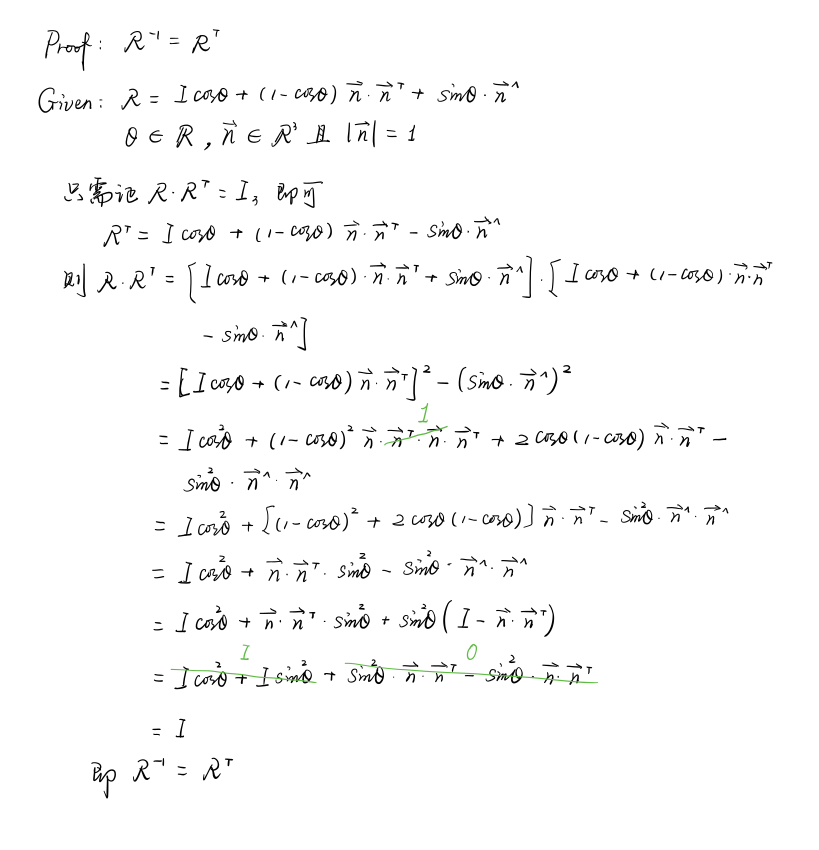 Proof: R⁻¹ = Rᵀ
Given: R = I cosθ + (1-cosθ) n⃗·n⃗ᵀ + sinθ·n⃗^
θ ∈ R , n⃗ ∈ R³ 且 |n⃗| = 1
只需证 R·Rᵀ = I, 即可
Rᵀ = I cosθ + (1-cosθ) n⃗·n⃗ᵀ - sinθ·n⃗^
则 R·Rᵀ = [I cosθ + (1-cosθ)·n⃗·n⃗ᵀ + sinθ·n⃗^]·[I cosθ + (1-cosθ)·n⃗·n⃗ᵀ
- sinθ·n⃗^]
= [I cosθ + (1-cosθ) n⃗·n⃗ᵀ]² - (sinθ·n⃗^)²
1
= I cos²θ + (1-cosθ)² n⃗·n⃗ᵀ·n⃗·n⃗ᵀ + 2cosθ(1-cosθ) n⃗·n⃗ᵀ -
sin²θ·n⃗^·n⃗^
= I cos²θ + [(1-cosθ)² + 2cosθ(1-cosθ)] n⃗·n⃗ᵀ - sin²θ·n⃗^·n⃗^
= I cos²θ + n⃗·n⃗ᵀ·sin²θ - sin²θ·n⃗^·n⃗^
= I cos²θ + n⃗·n⃗ᵀ·sin²θ + sin²θ(I - n⃗·n⃗ᵀ)
I 0
= I cos²θ + I sin²θ + sin²θ·n⃗·n⃗ᵀ - sin²θ·n⃗·n⃗ᵀ
= I
即 R⁻¹ = Rᵀ